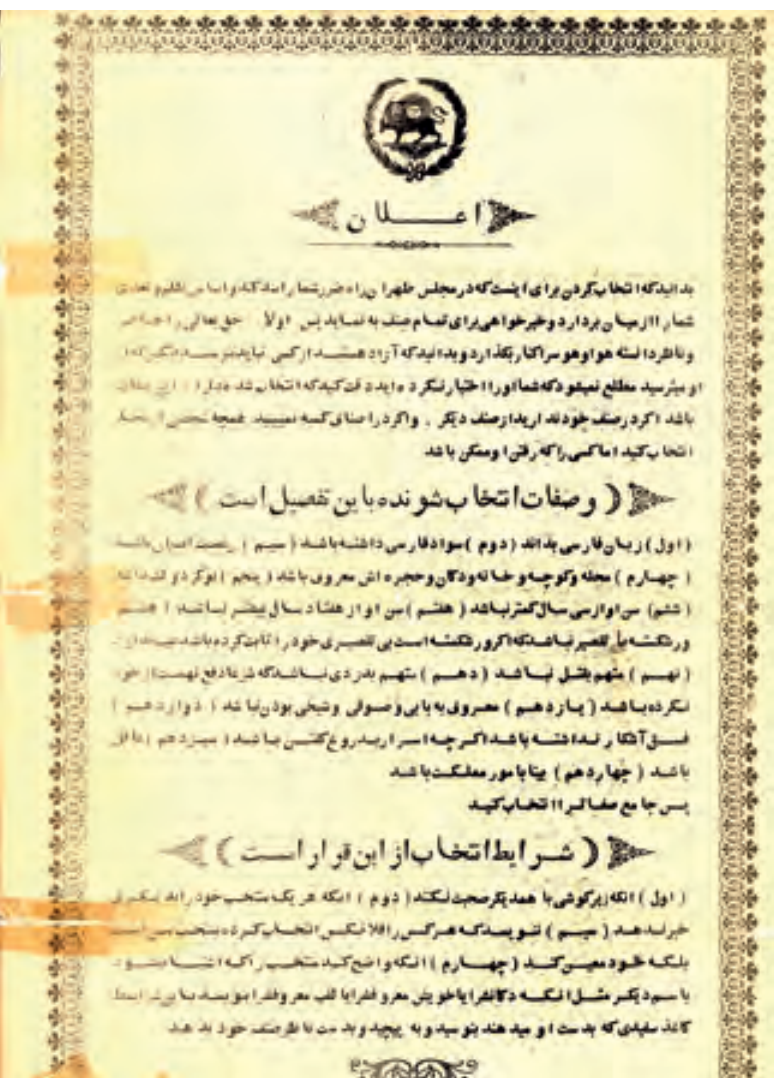 اعلان
بدانیدکه انتخاب کردن برای اینست که در مجلس طهران راه ضرر شما را سد کند و اساس ظلم و تعدی
شما را از میان بردارد و خیرخواهی برای تمام صنف به نماید پس اولاً حق تعالی را حاضر
و ناظر دانسته هوا و هوس را کنار بگذارد و بدانید که آزاد هستید از کسی نباید بترسید
او میترسید مطلع نمیشود که شما او را اختیار نکرده اید دقت کنید که انتخاب شده دارا این صفات
باشد اگر در صنف خودتان دارید از صنف دیگر . و اگر در اصنافی که همچه شخص
انتخاب کنید اما کسی را که رفتن او ممکن باشد
( وصفات انتخاب شونده باین تفصیل است )
( اول ) زبان فارسی بداند ( دوم ) سواد فارسی داشته باشد ( سیم ) رعیت ایران باشد
( چهارم ) محله و کوچه و خانه و دکان و حجره اش معروف باشد ( پنجم ) نوکر دولت نباشد
( ششم ) سن او از سی سال کمتر نباشد ( هفتم ) سن او از هفتاد سال بیشتر نباشد ( هشتم
ورشکسته به تقصیر نباشد که اگر ورشکسته است بی تقصیری خود را ثابت کرده باشد
( نهم ) متهم بقتل نباشد ( دهم ) متهم بدزدی نباشد که شرعا دفع تهمت از خود
نکرده باشد ( یازدهم ) معروف به بابی و صوفی و شیخی بودن نباشد ( دوازدهم )
فسق آشکار نداشته باشد اگر چه اسرار بدروغ گفتن باشد ( سیزدهم ) عاقل
باشد ( چهاردهم ) بینا بامور مملکت باشد
پس جامع صفات را انتخاب کنید
( شرایط انتخاب از این قرار است )
( اول ) آنکه زیرگوشی با همدیگر صحبت نکنند ( دوم ) آنکه هر یک منتخب خود را بدیگری
خبر ندهد ( سیم ) ننویسد که هر کس را فلانکس انتخاب کرده منتخب من است
بلکه خود معین کند ( چهارم ) آنکه واضح کند منتخب را که اشتباه نشود
با سم دیگر مثل آنکه دکانش را یا خویش معروفش را یا لقب معروفش را بنویسد با این شرایط
کاغذ سفیدی که بدست او میدهند بنویسد و به پیچد و بدست ناظر صنف خود بدهد